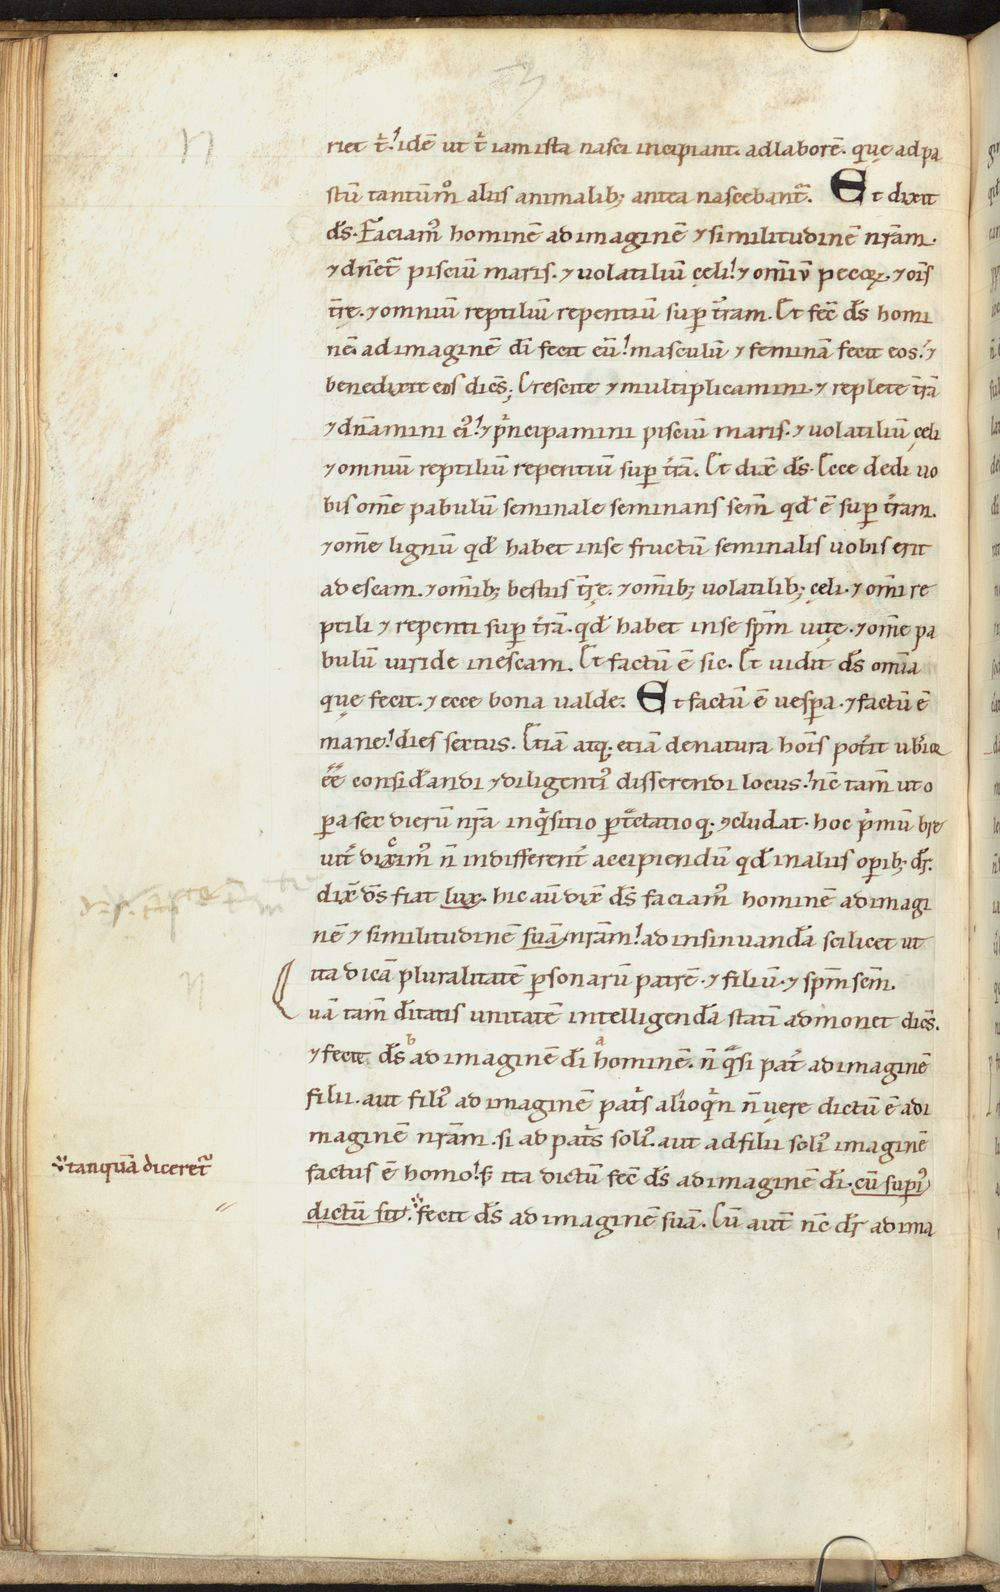 riet t̄. idē ut t̄ iam ista nasci incipiant. ad laborē. quę ad pa
stū tantūm̊ aliis animalib; antea nascebant᷑. Et dixit
dс̄. Faciam᷒ hominē ad imaginē ⁊ similitudinē nr̄am.
⁊ dn̄et᷑ pisciū maris. ⁊ uolatiliū cęli. ⁊ om̄iū pecoꝝ. ⁊ om̄s
tr̄ę. ⁊ omniū reptiliū repentiū sup̲ tr̄am. Et fec̄ ds̄ homi
nē. ad imaginē dī fecit eū. masculū ⁊ feminā fecit eos. ⁊
benedixit eos dicēs; Crescite ⁊ multiplicamini. ⁊ replete tr̄ā
⁊ dn̄amini ei᷒. ⁊ pͥncipamini pisciū maris. ⁊ uolatiliū cęli
⁊ omniū reptiliū repentiū suꝑ tr̄ā. Et dix̄ ds̄. Ecce dedi uo
bis om̄e pabulū seminale seminans sem̄ qd̄ ē suꝑ tr̄am.
⁊ om̄e lignū qd̄ habet in se fructū seminalis uobis erit
ad escam. ⁊ om̄ib; bestiis tr̄ę. ⁊ om̄ib; uolatilib; cęli. ⁊ om̄i re
ptili ⁊ repenti suꝑ tr̄ā. qd̄ habet in se sp̄m uitę. ⁊ om̄e pa
bulū uiride in escam. Et factū ē sic. Et uidit ds̄ om̄ia
quę fecit. ⁊ ecce bona ualde. Et factū ē uesꝑa. ⁊ factū ē
mane. dies sextus. Etiā atq; etiā de natura hoīs pot̄it ub̄ior
ēē consid̄andi ⁊ diligenti᷒ disserendi locus. nc̄ tam̄ ut o
ꝑa sex dierū nr̄a inqͥsitio ꝑt̄ctatioq; ꝯcludat. hoc pͥmū bre
uit̄ dixim᷒ n̄ indifferent̄ accipiendū qd̄ in aliis oꝑib; dr̄.
dix̄ ds̄ fiat lux. hic aū dix̄ ds̄ faciam᷒ hominē ad imagi
nē ⁊ similitudinē suā nr̄am. ad insinuandā scilicet ut
ita dicā pluralitatē ꝑsonarū patrē. ⁊ filiū. ⁊ sp̄m sc̄m.
uā tam̄ ditatis unitatē intelligendā statī admonet dicēs.
⁊ fecit ds̄ ᵇ ad imaginē dī ᵃ hominē. n̄ qᵃsi pat̄ ad imaginē
filii. aut fili᷒ ad imaginē patͥs alioqͥn n̄ uere dictū ē ad i
maginē nr̄am. si ad patͥs soli᷒. aut ad filii soli᷒ imaginē
factus ē homo. s; ita dictū fec̄ ds̄ ad imaginē dī. cū superi᷒
tanquā diceret᷑
dictū sit. fecit ds̄ ad imaginē suā. Cū aut̄ nc̄ dr̄ ad ima